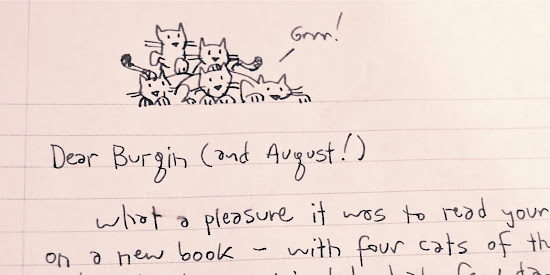 Grrr!
Dear Burgin (and August!)
What a pleasure it was to read your
on a new book – with four cats of th